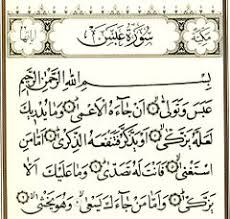 سُورَةُ عَبَسَ
بِسْمِ اللهِ الرَّحْمٰنِ الرَّحِيمِ
عَبَسَ وَتَوَلّٰىۙ اَنْ جَٓاءَهُ الْاَعْمٰىۜ وَمَا يُدْرِيكَ
لَعَلَّهُ يَزَّكّٰىۙ اَوْ يَذَّكَّرُ فَتَنْفَعَهُ الذِّكْرٰىۜ اَمَّا مَنِ
اسْتَغْنٰىۙ فَاَنْتَ لَهُ تَصَدّٰىۜ وَمَا عَلَيْكَ اَلَّا
يَزَّكّٰىۜ وَاَمَّا مَنْ جَٓاءَكَ يَسْعٰىۙ وَهُوَ يَخْشٰىۙ